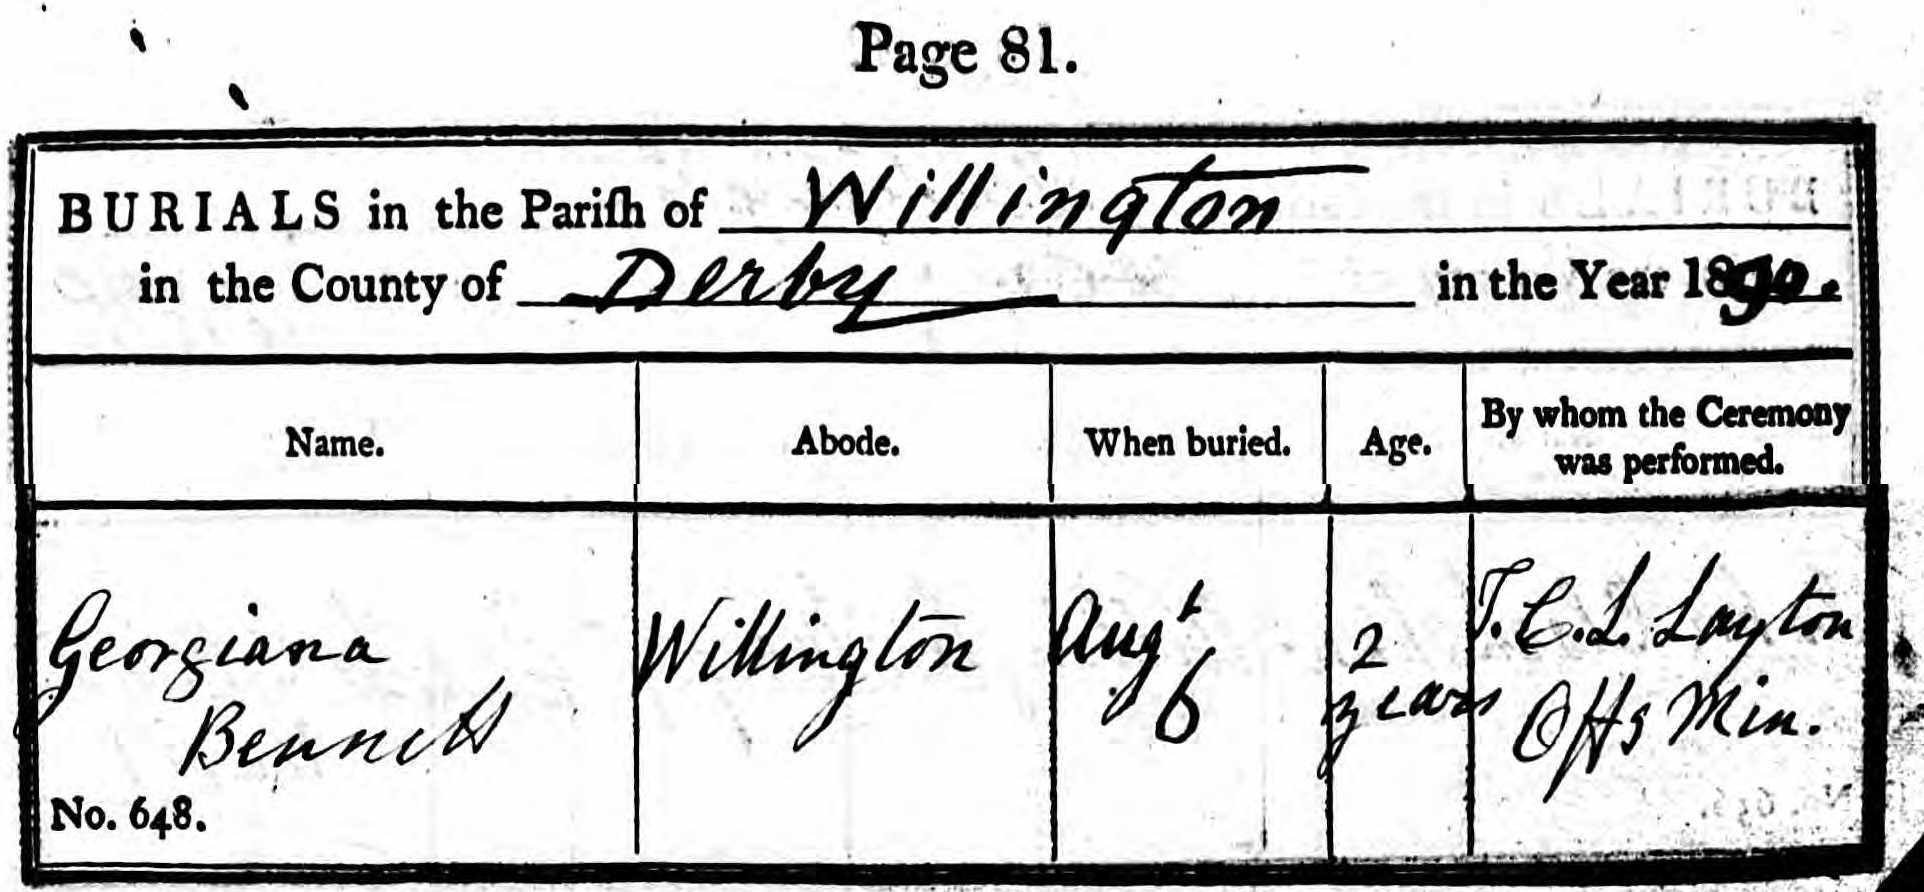 Page 81.
BURIALS in the Pariſh of Willington
in the County of Derby in the Year 1890.
Name. Abode. When buried. Age. By whom the Ceremony was performed.
Georgiana Bennett
Willington
Augt 6
2 years
T. C. L. Layton
Offg Min.
No. 648.